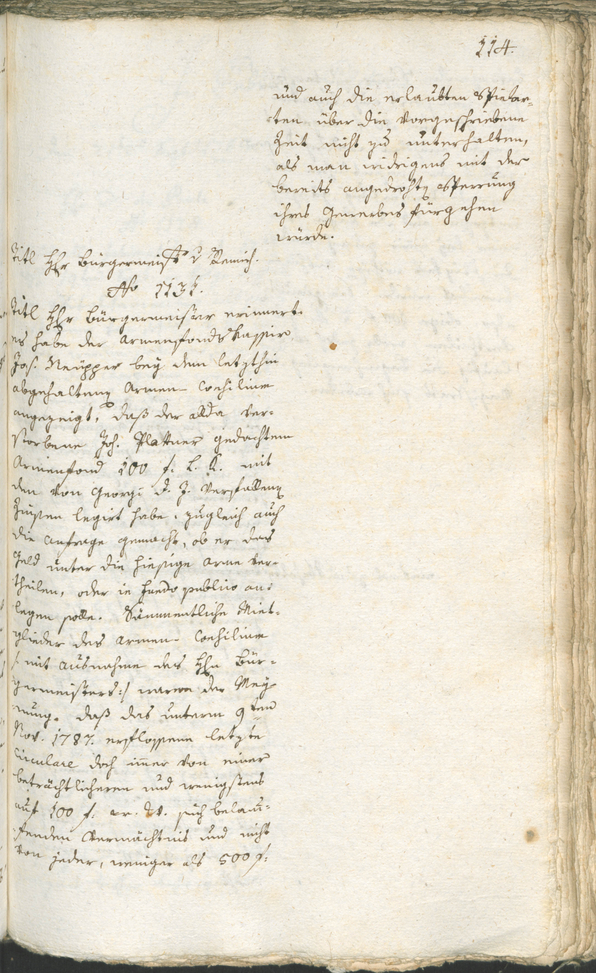 114.
und auch die erlaubten Spielar-
ten über die vorgeschriebene
Zeit nicht zu unterhalten,
als man widrigens mit der
bereits angedrohten Sperrung
ihres Gewerbes fürgehen
würde.
Titl Hhr Bürgermeister v
No 1131.
Titl Hhr Bürgermeister erinnert
es habe der Armenfonds Kassier
Jos. Neupper bey dem letzthin
abgehaltenen Armen
angezeigt, daß der allda ver-
storbene Joh. Plattner gedachtem
Armenfond 100 f. mit
den von Georgi d. J. verfallenen
Zinsen legirt habe, zugleich auch
die Anfrage gemacht, ob er das
Geld unter die hiesige Arme ver-
theilen, oder in fundo publico an-
legen solle. Sämmentliche Mit-
glieder des Armen
/: mit Ausnahme des Hhn Bür-
germeisters :/ waren der Mey-
nung, daß das unterm 9ten
Nov. 1787. erflossene letzte
Circulare doch immer von einer
beträchtlicheren und wenigstens
auf 100 f. sich belau-
fenden Vermächtnis und nicht
von jeder, weniger als 500 f.